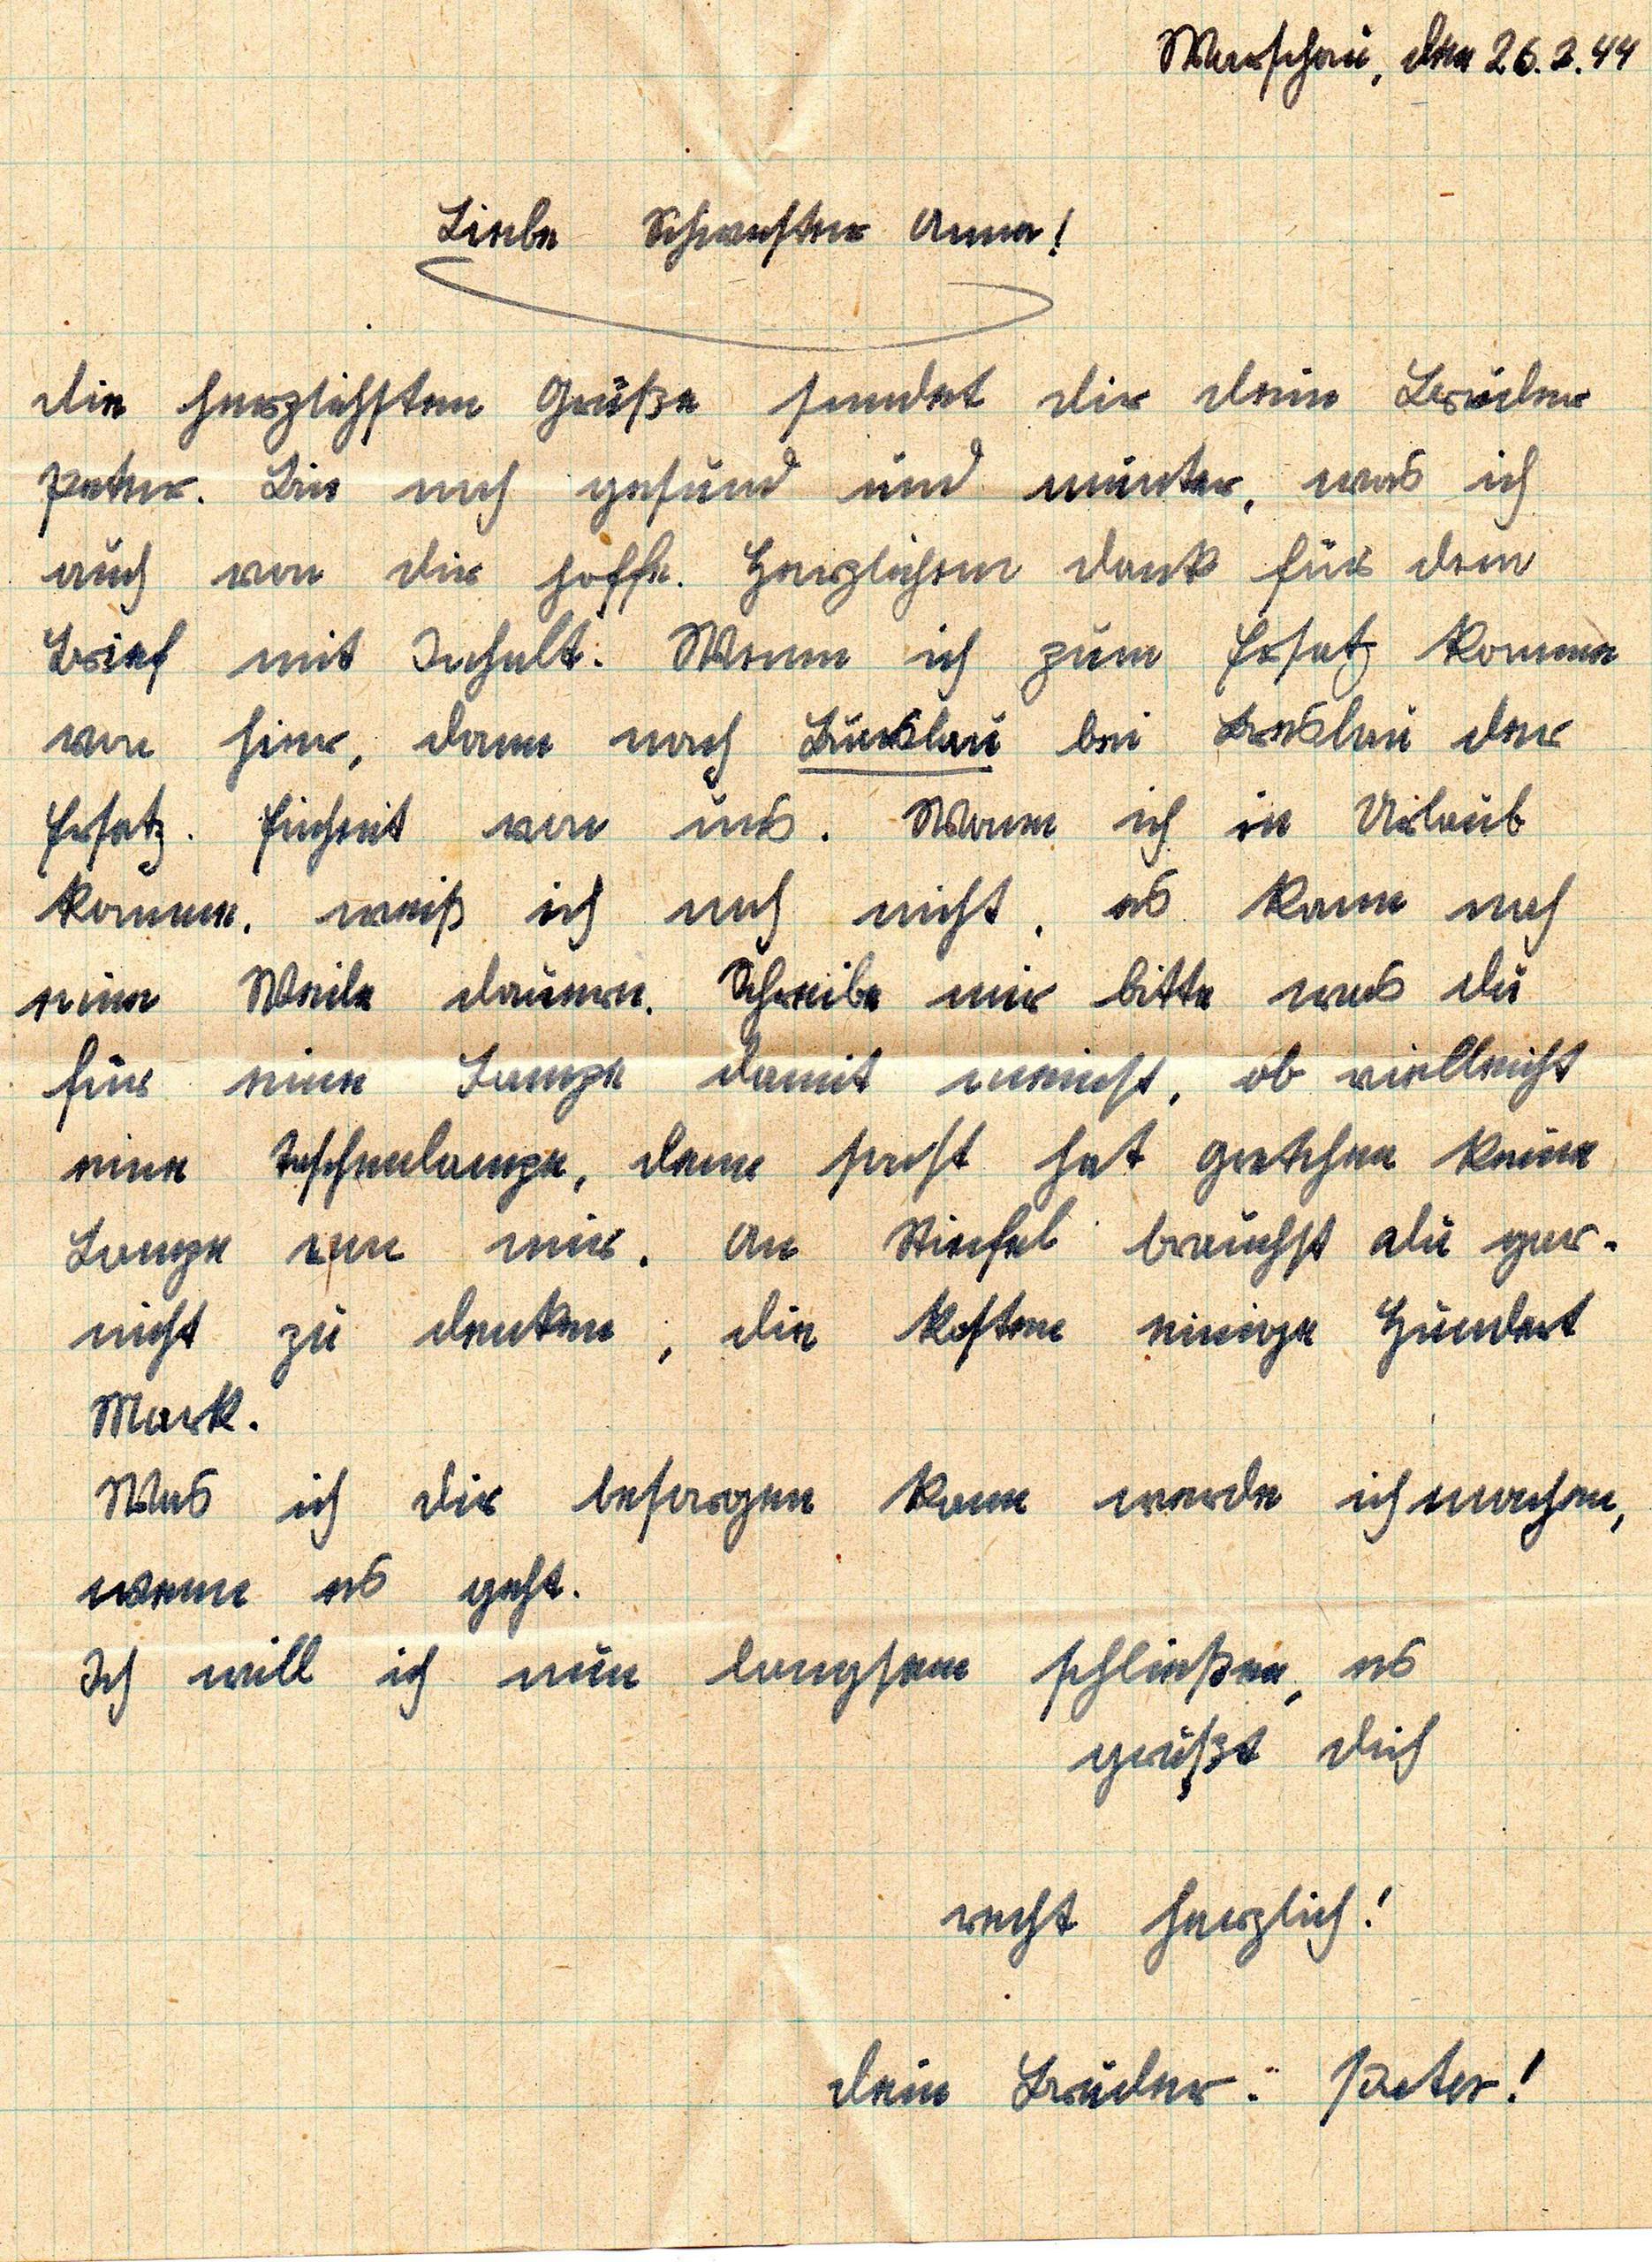 Warschau, den 26.2.44
Liebe Schwester Anna!
die herzlichsten Grüße sendet dir dein Bruder
Peter. Bin noch gesund und munter, was ich
auch von dir hoffe. Herzlichen dank für den
Brief mit Inhalt. Wenn ich zum Ersatz komme
von hier, dann nach bei Breslau der
Ersatz. Einheit von uns. Wann ich in Urlaub
komme, weiß ich noch nicht, es kann noch
eine Weile dauern. Schreibe mir bitte was du
für eine Lampe damit meinst, ob vielleicht
eine Taschenlampe, denn sonst hat gretchen keine
Lampe von mir. An Stiefel brauchst du gar-
nicht zu denken, die kosten einige Hundert
Mark.
Was ich dir besorgen kann werde ich machen,
wenn es geht.
Ich will ich nun langsam schließen, es
grüßt dich
recht herzlich!
dein Bruder: Peter!